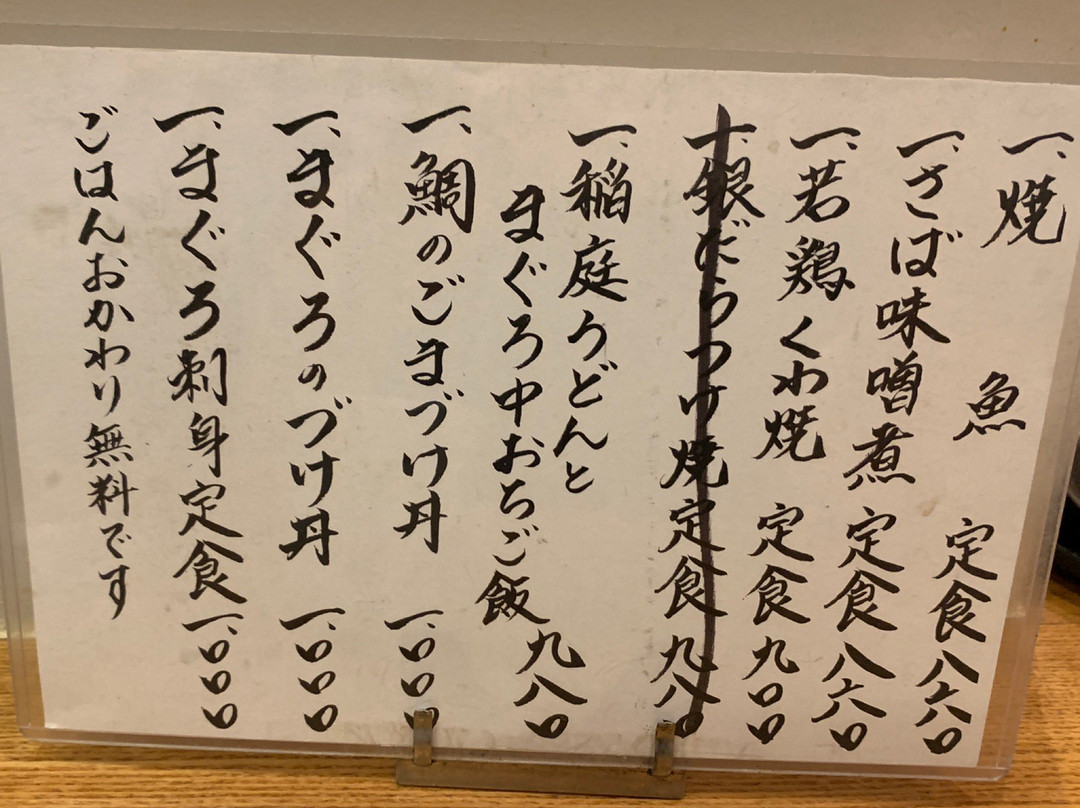 一、焼魚定食八六〇
一、さば味噌煮定食八六〇
一、若鶏くわ焼定食九〇〇
一、銀だらつけ焼定食九八〇
一、稲庭うどんと
まぐろ中おちご飯九八〇
一、鯛のごまづけ丼一、〇〇〇
一、まぐろのづけ丼一、〇〇〇
一、まぐろ刺身定食一、〇〇〇
ごはんおかわり無料です